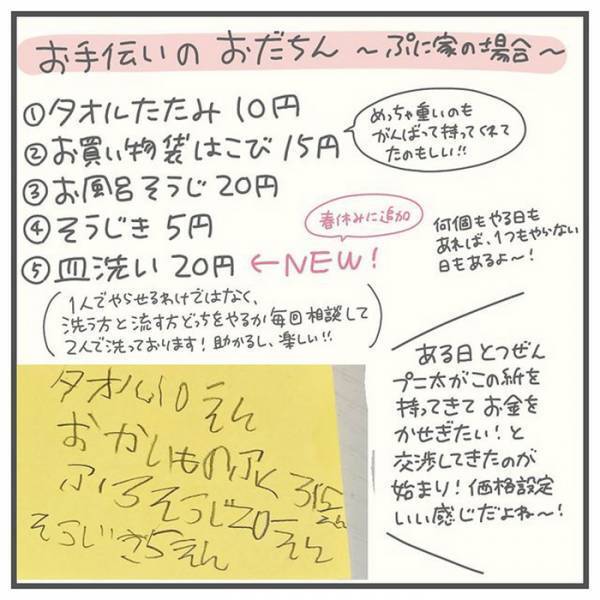 お手伝いの おだちん ～ ぷに家の場合～
①タオルたたみ 10円
めっちゃ重いのも
がんばって持ってくれて
たのもしい!!
②お買い物袋はこび 15円
③お風呂そうじ 20円
④そうじき 5円
春休みに追加
⑤皿洗い 20円 ←NEW!
何個もやる日も
あれば、1つもやらない
日もあるよ～!
(1人でやらせるわけではなく、
洗う方と流す方どっちをやるか毎回相談して
2人で洗っております!助かるし、楽しい!!)
ある日とつぜん
プニ太がこの紙を
持ってきて お金を
かせぎたい!と
交渉してきたのが
始まり!価格設定
いい感じだよね～!
タオル10えん
おかいものふく
ふろそうじ20えん
そうじき5えん